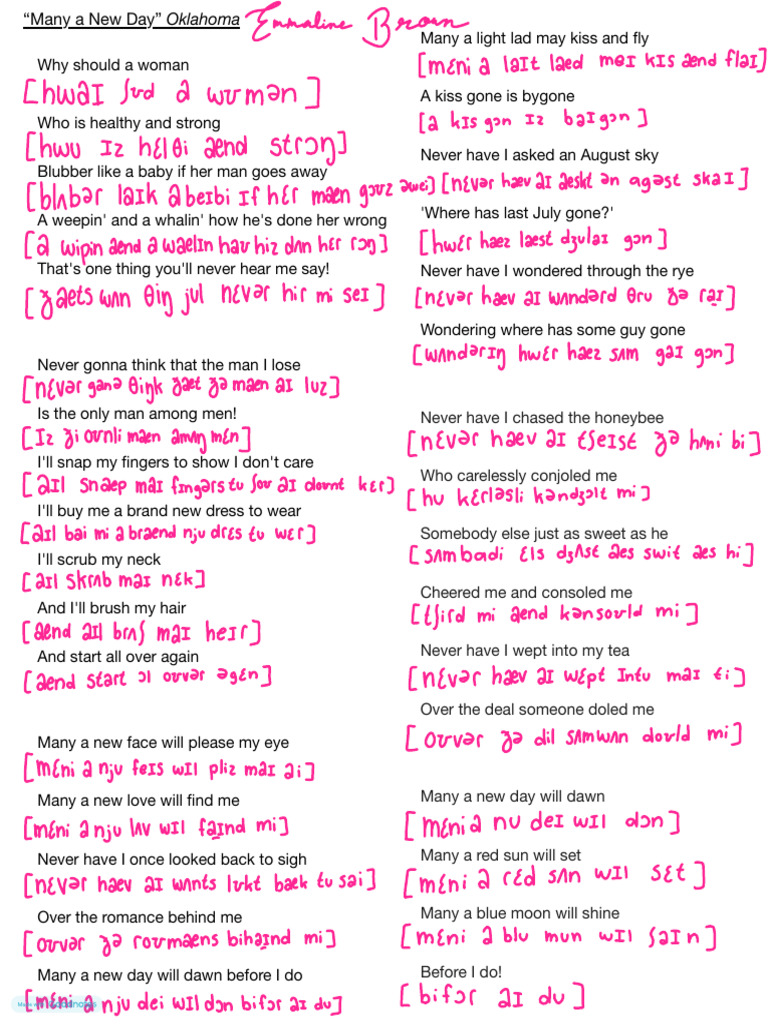 “Many a New Day” Oklahoma Emmaline Brown
Why should a woman
[hwaɪ ʃʊd a wʊmən]
Who is healthy and strong
[hwu ɪz hɛlθi aend strɔŋ]
Blubber like a baby if her man goes away
[blʌbər laɪk a beɪbi ɪf hɛr maen goʊz əwei]
A weepin' and a whalin' how he's done her wrong
[a wipin aend a waelɪn haʊ hiz dʌn hɛr rɔŋ]
That's one thing you'll never hear me say!
[ʒaets wʌn θiŋ jul nɛvər hir mi seɪ]
Never gonna think that the man I lose
[nɛvər ganə θiŋk ʒaet ʒə maen aɪ luz]
Is the only man among men!
[ɪz ʒi oʊnli maen amʌŋ mɛn]
I'll snap my fingers to show I don't care
[aɪl snaep maɪ fɪngərs tu ʃoʊ aɪ doʊnt kɛr]
I'll buy me a brand new dress to wear
[aɪl bai mi a braend nju drɛs tu wɛr]
I'll scrub my neck
[aɪl skrʌb maɪ nɛk]
And I'll brush my hair
[aend aɪl brʌʃ maɪ heɪr]
And start all over again
[aend start ɔl oʊvər əgɛn]
Many a new face will please my eye
[mɛni a nju feɪs wɪl pliz maɪ ai]
Many a new love will find me
[mɛni a nju lʌv wɪl faɪnd mi]
Never have I once looked back to sigh
[nɛvər haev aɪ wʌnts lʊkt baek tu sai]
Over the romance behind me
[oʊvər ʒə roʊmaens bihaɪnd mi]
Many a new day will dawn before I do
[mɛni a nju dei wɪl dɔn bifɔr aɪ du]
Many a light lad may kiss and fly
[mɛni a laɪt laed meɪ kɪs aend flaɪ]
A kiss gone is bygone
[a kɪs gɔn ɪz baɪgɔn]
Never have I asked an August sky
[nɛvər haev aɪ aeskt ən agəst skaɪ]
'Where has last July gone?'
[hwɛr haez laest dʒulaɪ gɔn]
Never have I wondered through the rye
[nɛvər haev aɪ wʌndərd θru ʒə raɪ]
Wondering where has some guy gone
[wʌndərɪŋ hwɛr haez sʌm gaɪ gɔn]
Never have I chased the honeybee
[nɛvər haev aɪ tʃeɪst ʒə hʌni bi]
Who carelessly conjoled me
[hu kɛrləsli kəndʒɔlt mi]
Somebody else just as sweet as he
[sʌmbadi ɛls dʒʌst aes swit aes hi]
Cheered me and consoled me
[tʃird mi aend kənsoʊld mi]
Never have I wept into my tea
[nɛvər haev aɪ wɛpt ɪntu maɪ ti]
Over the deal someone doled me
[oʊvər ʒə dil sʌmwʌn doʊld mi]
Many a new day will dawn
[mɛni a nu deɪ wɪl dɔn]
Many a red sun will set
[mɛni a rɛd sʌn wɪl sɛt]
Many a blue moon will shine
[mɛni a blu mun wɪl ʃaɪn]
Before I do!
[bifɔr aɪ du]